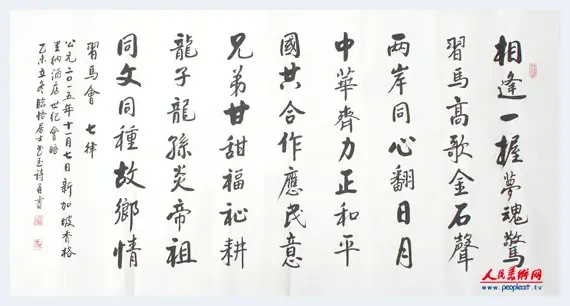 相逢一握夢魂驚
習馬高歌金石聲
兩岸同心翻日月
中華齊力正和平
國共合作應民意
兄弟甘甜福祉耕
龍子龍孫炎帝祖
同文同種故鄉情
習馬會 七律
公元二〇一五年十一月七日新加坡香格
里納酒店世紀會晤
乙未立冬臨悟居士書
人民美術网
www.peopleart.tv